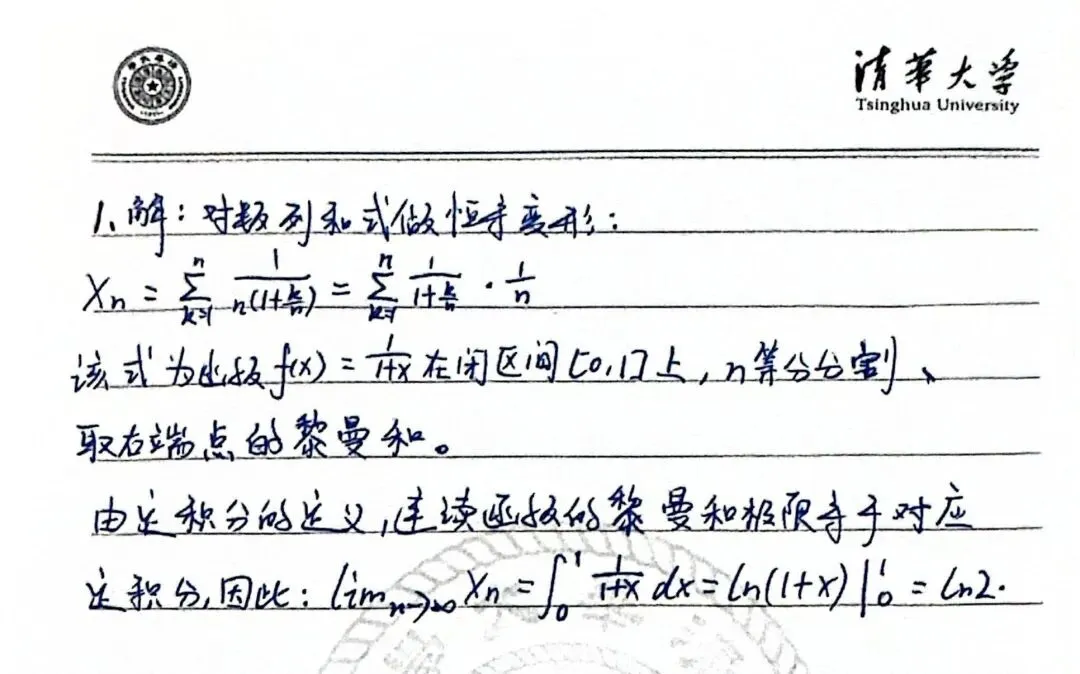 清華大学
Tsinghua University
1. 解：对数列和式做恒等变形：
Xn = ∑_{k=1}^{n} 1/(n(1+k/n)) = ∑_{k=1}^{n} 1/(1+k/n) · 1/n
该式为函数 f(x) = 1/(1+x) 在闭区间 [0,1] 上，n等分分割、
取右端点的黎曼和。
由定积分的定义，连续函数的黎曼和极限等于对应
定积分，因此：lim_{n→∞} Xn = ∫_0^1 1/(1+x) dx = ln(1+x) |_0^1 = ln2.